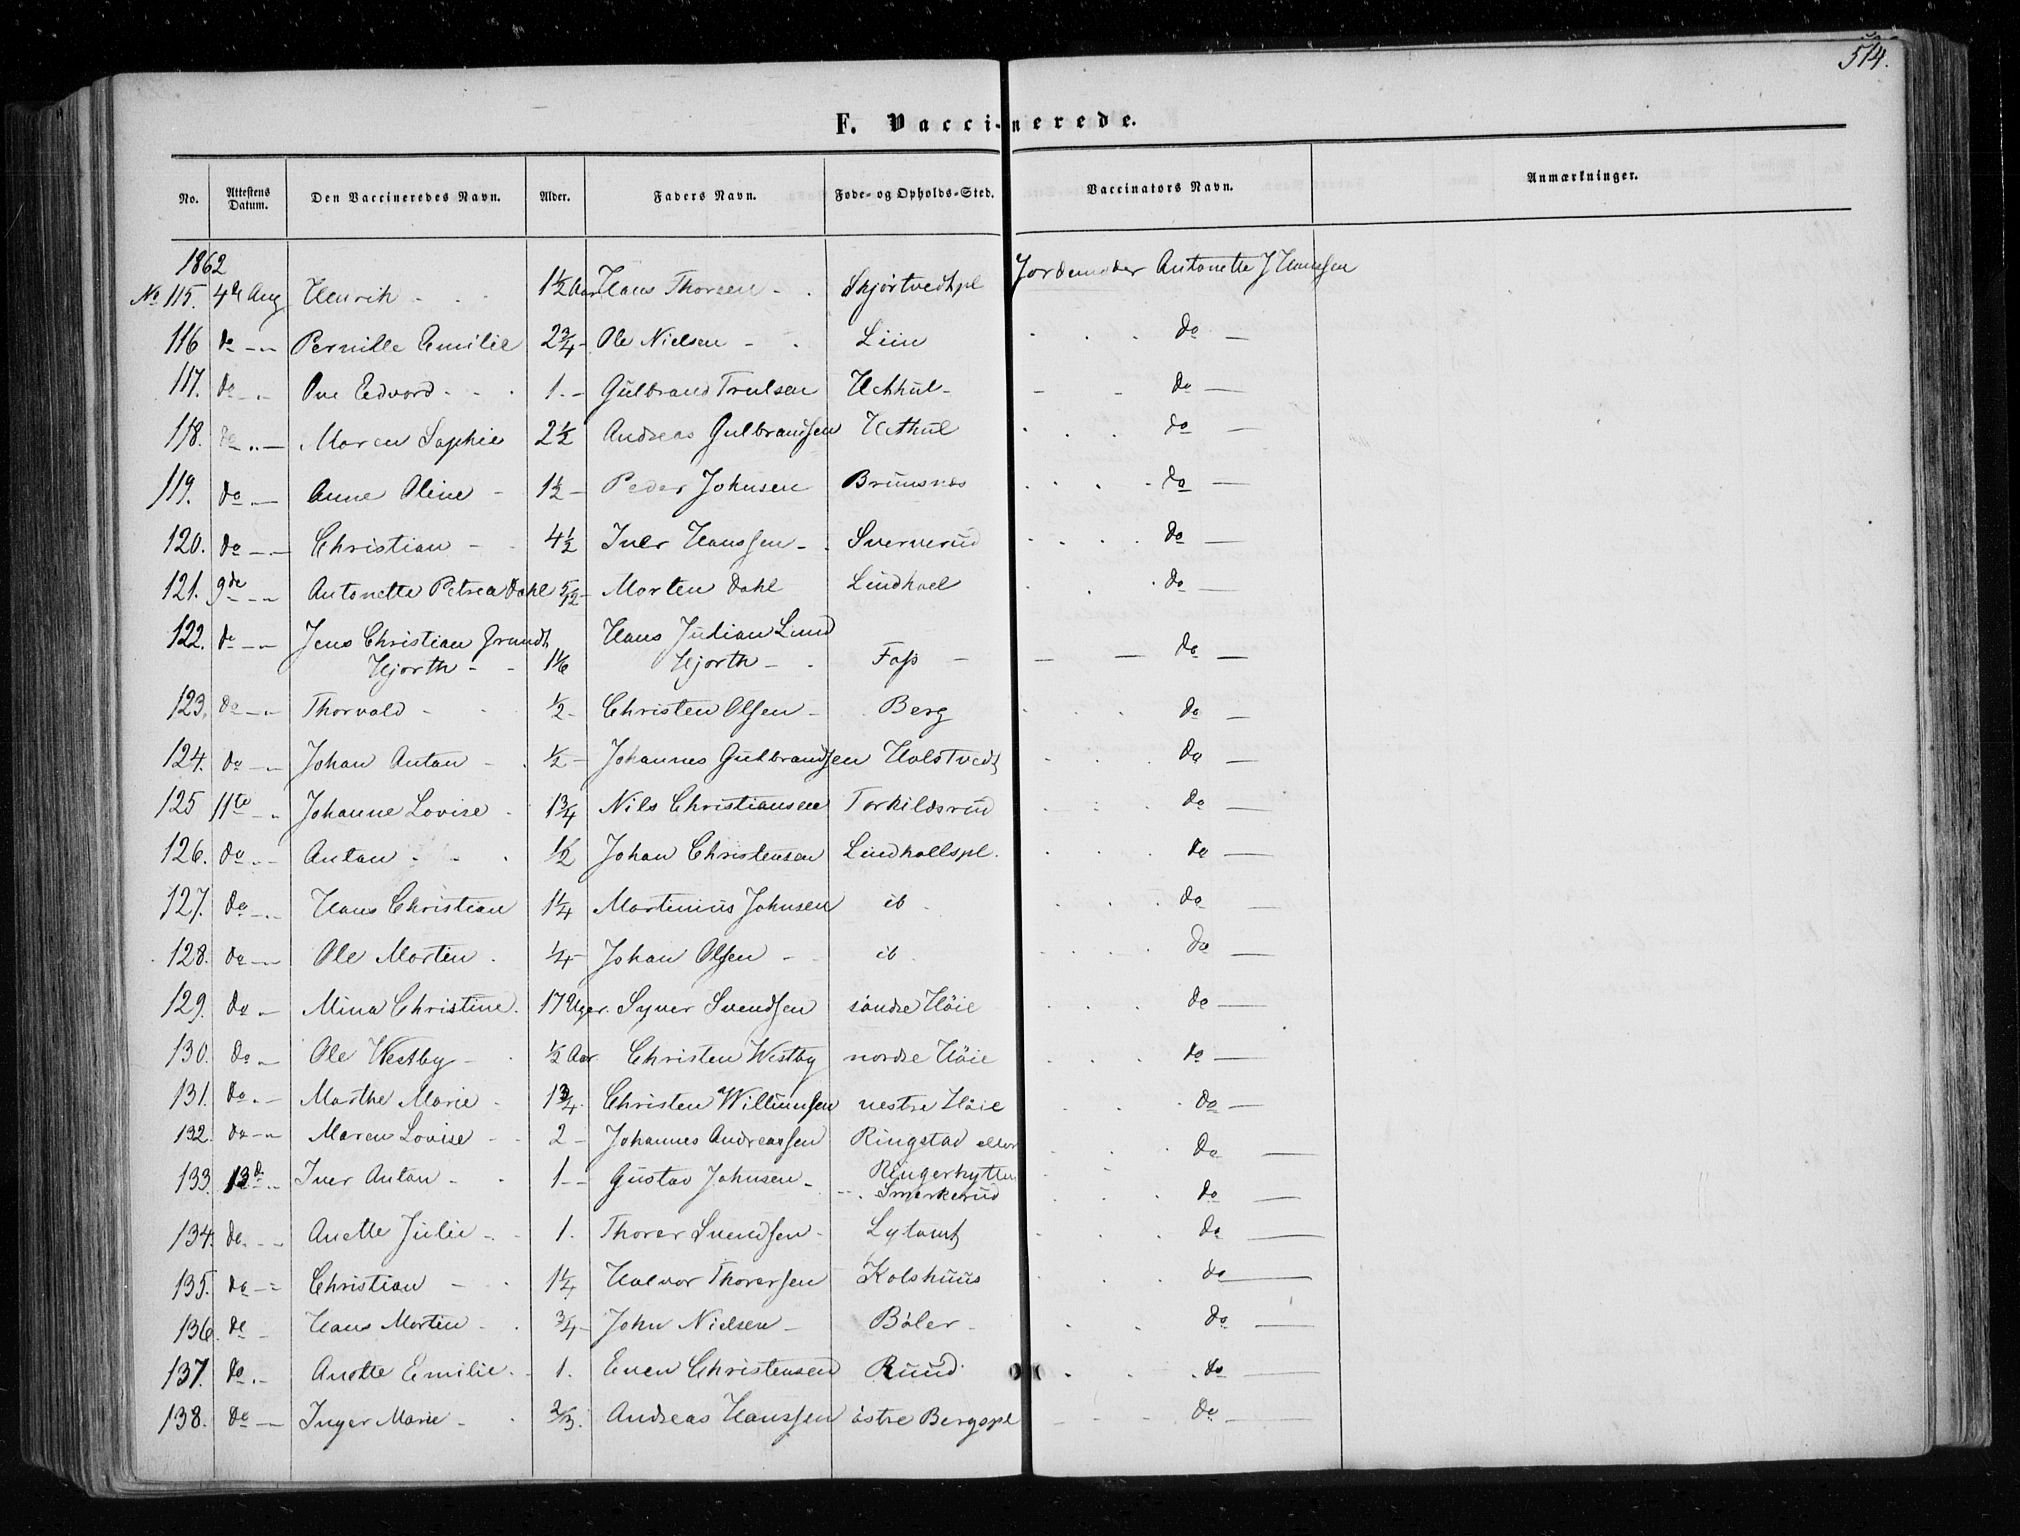 514.
F. Vaccinerede.
No. Attestens Datum. Den Vaccineredes Navn. Alder. Faders Navn. Føde- og Opholds-Sted. Vaccinators Navn. Anmærkninger.
1862
No 115. 4de Aug Henrik 1½ Aar Hans Thoresen Skjørtvedtpl Jordemoder Antonette J Hansen
116 do Pernille Emilie 2¾ Ole Nielsen Liin do
117. do Ove Edvard 1 Gulbrand Trulsen do
118. do Maren Sophie 2½ Andreas Gulbrandsen do
119. do Anne Oline 1½ Peder Johnsen Bruusnes do
120. do Christian 4½ Iver Hanssen Sververud do
121. 9de Antonette Petrea Dahl 5/12 Morten Dahl Lindhoel do
122. do Jens Christian Grundt Hans Julian Lund
Hjorth 1 1/6 Hjorth Foss do
123. do Thorvald ½ Christen Olsen Berg do
124. do Johan Anton ½ Johannes Gulbrandsen Holstvedt do
125 11te Johanne Lovise 1¾ Nils Christiansen Torkildsrud do
126. do Anton ½ Johan Christensen Lindhollspl. do
127. do Hans Christian 1¼ Martinius Johnsen ib do
128. do Ole Morten ¼ Johan Olsen ib do
129. do Mina Christine. 17 Uger. Syver Svendsen søndre Høie do
130. do Ole Westby ½ Aar Christen Westby nordre Høie do
131. do Marthe Marie 1¾ Christen Willumsen vestre Høie do
132. do Maren Lovise 2 Johannes Andreassen Ringstad eller do
Ringerhytten
133. 13de Iver Anton 1 Gustav Johnsen Smerkerud do
134. do Anette Julie 1. Thorer Svendsen Lytomt do
135. do Christian 1¼ Halvor Thorersen Kolshuus do
136. do Hans Morten ¾ John Nielsen Bøler do
137. do Anette Emilie 1. Even Christensen Ruud do
138. do Inger Marie 2/3. Andreas Hanssen østre Bergspl do